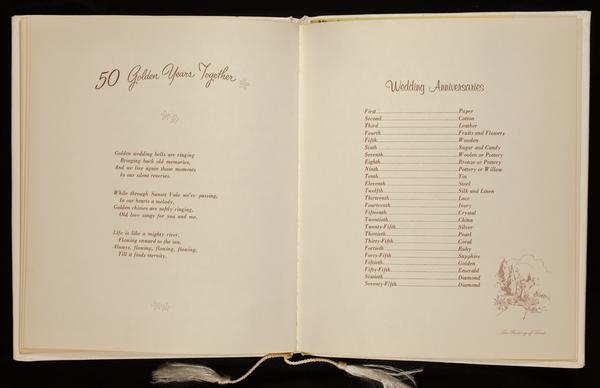 50 Golden Years Together
Golden wedding bells are ringing
Bringing back old memories,
And we live again those moments
In our silent reveries.
While through Sunset Vale we're passing,
In our hearts a melody,
Golden chimes are softly ringing,
Old love songs for you and me.
Life is like a mighty river,
Flowing onward to the sea,
Always, flowing, flowing, flowing,
Till it finds eternity.
Wedding Anniversaries
First Paper
Second Cotton
Third Leather
Fourth Fruits and Flowers
Fifth Wooden
Sixth Sugar and Candy
Seventh Woolen or Pottery
Eighth Bronze or Pottery
Ninth Pottery or Willow
Tenth Tin
Eleventh Steel
Twelfth Silk and Linen
Thirteenth Lace
Fourteenth Ivory
Fifteenth Crystal
Twentieth China
Twenty-Fifth Silver
Thirtieth Pearl
Thirty-Fifth Coral
Fortieth Ruby
Forty-Fifth Sapphire
Fiftieth Golden
Fifty-Fifth Emerald
Sixtieth Diamond
Seventy-Fifth Diamond
The Passing of Time